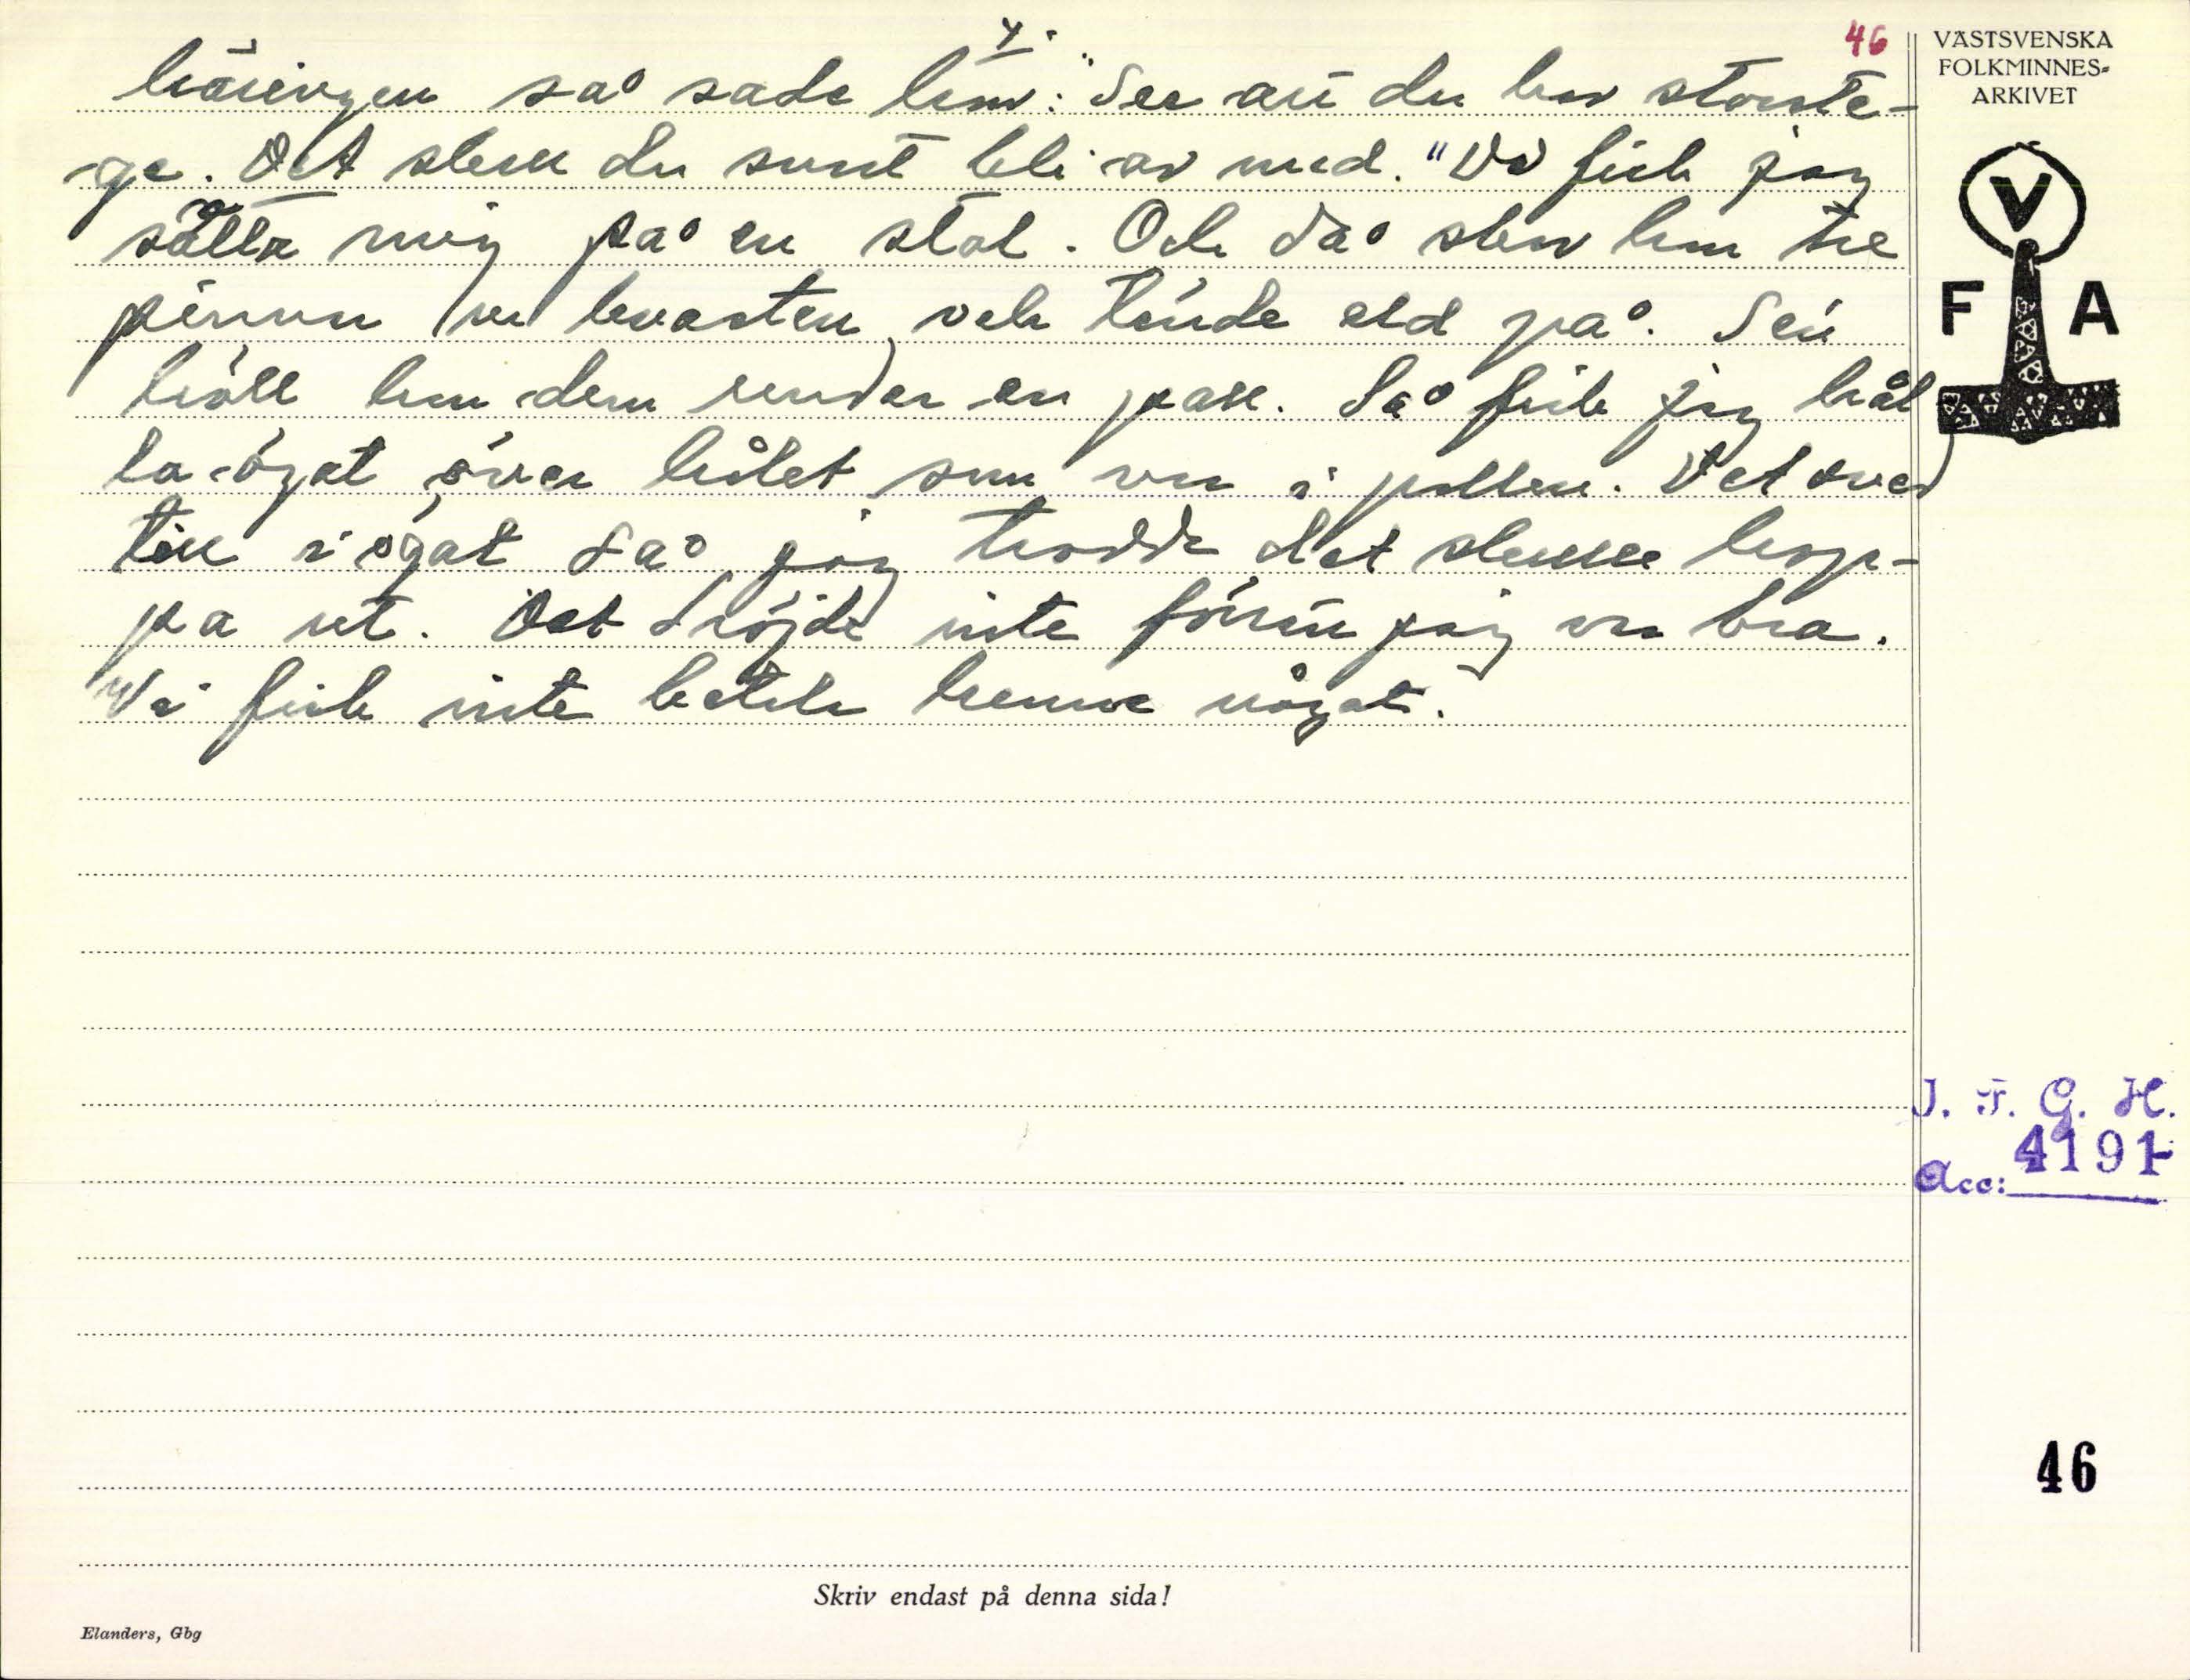 4.
46
så sade hon: "Ser att du har
ge. Det skall du snart bli av med." Då fick jag
sätta mig på en stol. Och då skar hon tre
pinnar ur kvasten och tände eld på. Sen
höll hon dem under en pall. Så fick jag hål
la ögat över hålet som var i pallen. Det sved
till i ögat så jag trodde det skulle hop-
pa ut. Det dröjde inte förrän jag var bra.
Vi fick inte betala henne något.
VÄSTSVENSKA
FOLKMINNES-
ARKIVET
V
F A
I. F. G. H.
Acc: 4191
46
Skriv endast på denna sida!
Elanders, Gbg